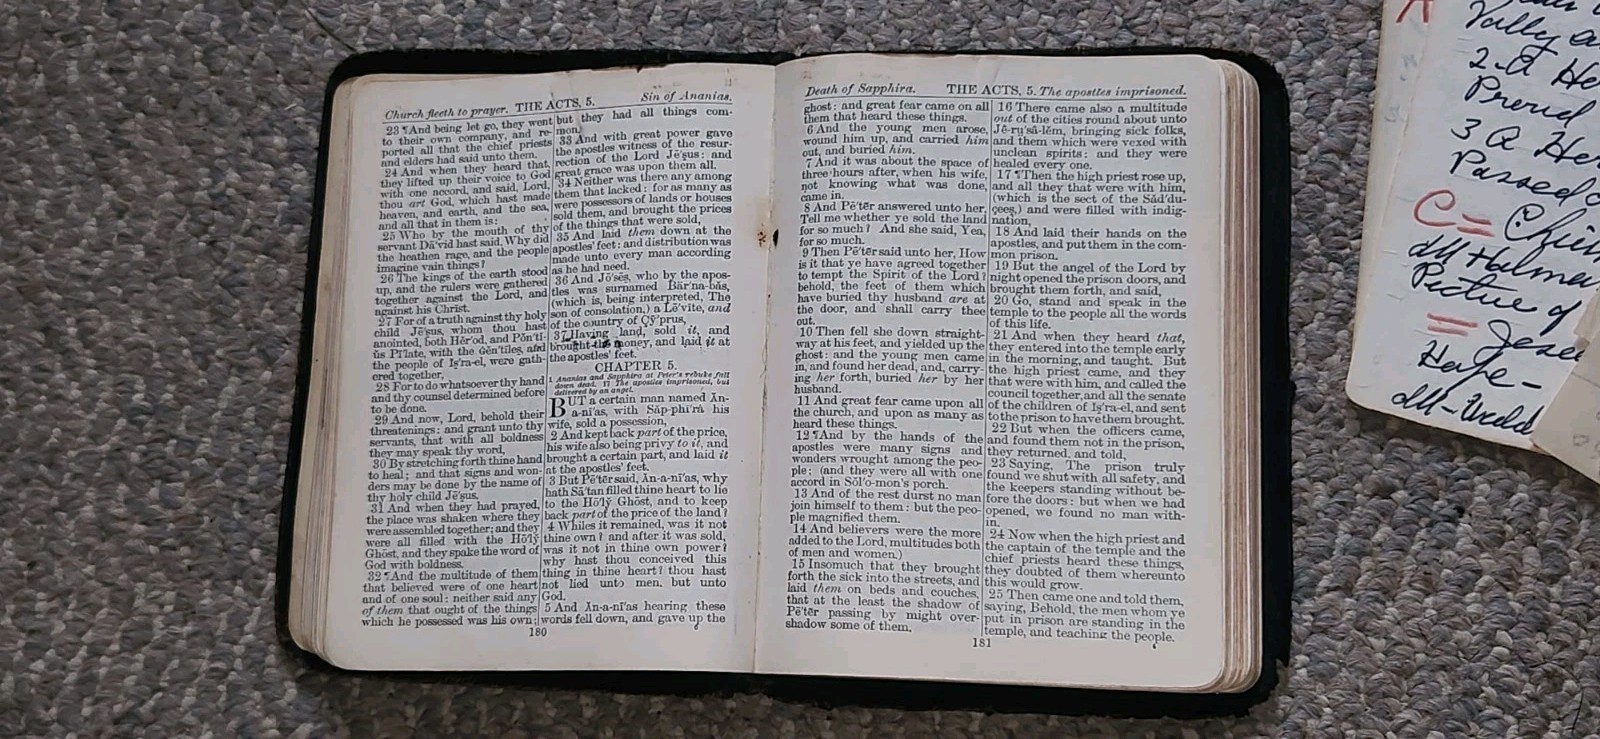 Church fleeth to prayer. THE ACTS, 5. Sin of Ananias.
23 ¶And being let go, they went
to their own company, and re-
ported all that the chief priests
and elders had said unto them.
24 And when they heard that,
they lifted up their voice to God
with one accord, and said, Lord,
thou art God, which hast made
heaven, and earth, and the sea,
and all that in them is:
25 Who by the mouth of thy
servant Dā'vid hast said, Why did
the heathen rage, and the people
imagine vain things?
26 The kings of the earth stood
up, and the rulers were gathered
together against the Lord, and
against his Christ.
27 For of a truth against thy holy
child Jē'ṣus, whom thou hast
anointed, both Hĕr'od, and Pŏn'tĭ-
ŭs Pī'late, with the Gĕn'tīles, and
the people of Iṣ'ra-el, were gath-
ered together,
28 For to do whatsoever thy hand
and thy counsel determined before
to be done.
29 And now, Lord, behold their
threatenings: and grant unto thy
servants, that with all boldness
they may speak thy word,
30 By stretching forth thine hand
to heal; and that signs and won-
ders may be done by the name of
thy holy child Jē'ṣus.
31 And when they had prayed,
the place was shaken where they
were assembled together; and they
were all filled with the Hō'lẏ
Ghōst, and they spake the word of
God with boldness.
32 ¶And the multitude of them
that believed were of one heart
and of one soul: neither said any
of them that ought of the things
which he possessed was his own;
but they had all things com-
mon.
33 And with great power gave
the apostles witness of the resur-
rection of the Lord Jē'ṣus: and
great grace was upon them all.
34 Neither was there any among
them that lacked: for as many as
were possessors of lands or houses
sold them, and brought the prices
of the things that were sold,
35 And laid them down at the
apostles' feet: and distribution was
made unto every man according
as he had need.
36 And Jō'sēs, who by the apos-
tles was surnamed Bär'na-băs,
(which is, being interpreted, The
son of consolation,) a Lē'vīte, and
of the country of Çȳ'prus,
37 Having land, sold it, and
brought the money, and laid it at
the apostles' feet.
CHAPTER 5.
1 Ananias and Sapphira at Peter's rebuke fall
down dead. 17 The apostles imprisoned, but
delivered by an angel.
BUT a certain man named Ăn-
a-nī'as, with Săp-phī'rȧ his
wife, sold a possession,
2 And kept back part of the price,
his wife also being privy to it, and
brought a certain part, and laid it
at the apostles' feet.
3 But Pē'tẽr said, Ăn-a-nī'as, why
hath Sā'tan filled thine heart to lie
to the Hō'lẏ Ghōst, and to keep
back part of the price of the land?
4 Whiles it remained, was it not
thine own? and after it was sold,
was it not in thine own power?
why hast thou conceived this
thing in thine heart? thou hast
not lied unto men, but unto
God.
5 And Ăn-a-nī'as hearing these
words fell down, and gave up the
180
Death of Sapphira. THE ACTS, 5. The apostles imprisoned.
ghost: and great fear came on all
them that heard these things.
6 And the young men arose,
wound him up, and carried him
out, and buried him.
7 And it was about the space of
three hours after, when his wife,
not knowing what was done,
came in.
8 And Pē'tẽr answered unto her,
Tell me whether ye sold the land
for so much? And she said, Yea,
for so much.
9 Then Pē'tẽr said unto her, How
is it that ye have agreed together
to tempt the Spirit of the Lord?
behold, the feet of them which
have buried thy husband are at
the door, and shall carry thee
out.
10 Then fell she down straight-
way at his feet, and yielded up the
ghost: and the young men came
in, and found her dead, and, carry-
ing her forth, buried her by her
husband.
11 And great fear came upon all
the church, and upon as many as
heard these things.
12 ¶And by the hands of the
apostles were many signs and
wonders wrought among the peo-
ple: (and they were all with one
accord in Sŏl'o-mon's porch.
13 And of the rest durst no man
join himself to them: but the peo-
ple magnified them.
14 And believers were the more
added to the Lord, multitudes both
of men and women.)
15 Insomuch that they brought
forth the sick into the streets, and
laid them on beds and couches,
that at the least the shadow of
Pē'tẽr passing by might over-
shadow some of them.
16 There came also a multitude
out of the cities round about unto
Jē-ru̟'sȧ-lĕm, bringing sick folks,
and them which were vexed with
unclean spirits: and they were
healed every one.
17 ¶Then the high priest rose up,
and all they that were with him,
(which is the sect of the Săd'du-
çeeṣ,) and were filled with indig-
nation,
18 And laid their hands on the
apostles, and put them in the com-
mon prison.
19 But the angel of the Lord by
night opened the prison doors, and
brought them forth, and said,
20 Go, stand and speak in the
temple to the people all the words
of this life.
21 And when they heard that,
they entered into the temple early
in the morning, and taught. But
the high priest came, and they
that were with him, and called the
council together, and all the senate
of the children of Iṣ'ra-el, and sent
to the prison to have them brought.
22 But when the officers came,
and found them not in the prison,
they returned, and told,
23 Saying, The prison truly
found we shut with all safety, and
the keepers standing without be-
fore the doors: but when we had
opened, we found no man with-
in.
24 Now when the high priest and
the captain of the temple and the
chief priests heard these things,
they doubted of them whereunto
this would grow.
25 Then came one and told them,
saying, Behold, the men whom ye
put in prison are standing in the
temple, and teaching the people.
181
2-a He
Proud
3 a He
Passed
C=
Picture of
=